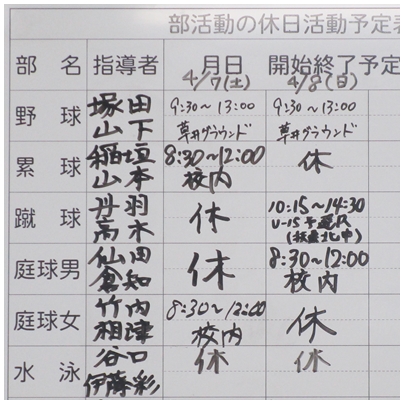 部活動の休日活動予定表
部 名 指導者 月日 開始終了予定
4/7(土) 4/8(日)
野 球 塚田 山下 9:30〜13:00 草井グラウンド 9:30〜13:00 草井グラウンド
塁球 稲垣 山本 8:30〜12:00 校内 休
蹴 球 丹羽 高木 休 10:15〜14:30 U-15予選R (扶桑北中)
庭球男 仙田 倉知 休 8:30〜12:00 校内
庭球女 竹内 相津 8:30〜12:00 校内 休
水 泳 谷口 伊藤彩 休 休